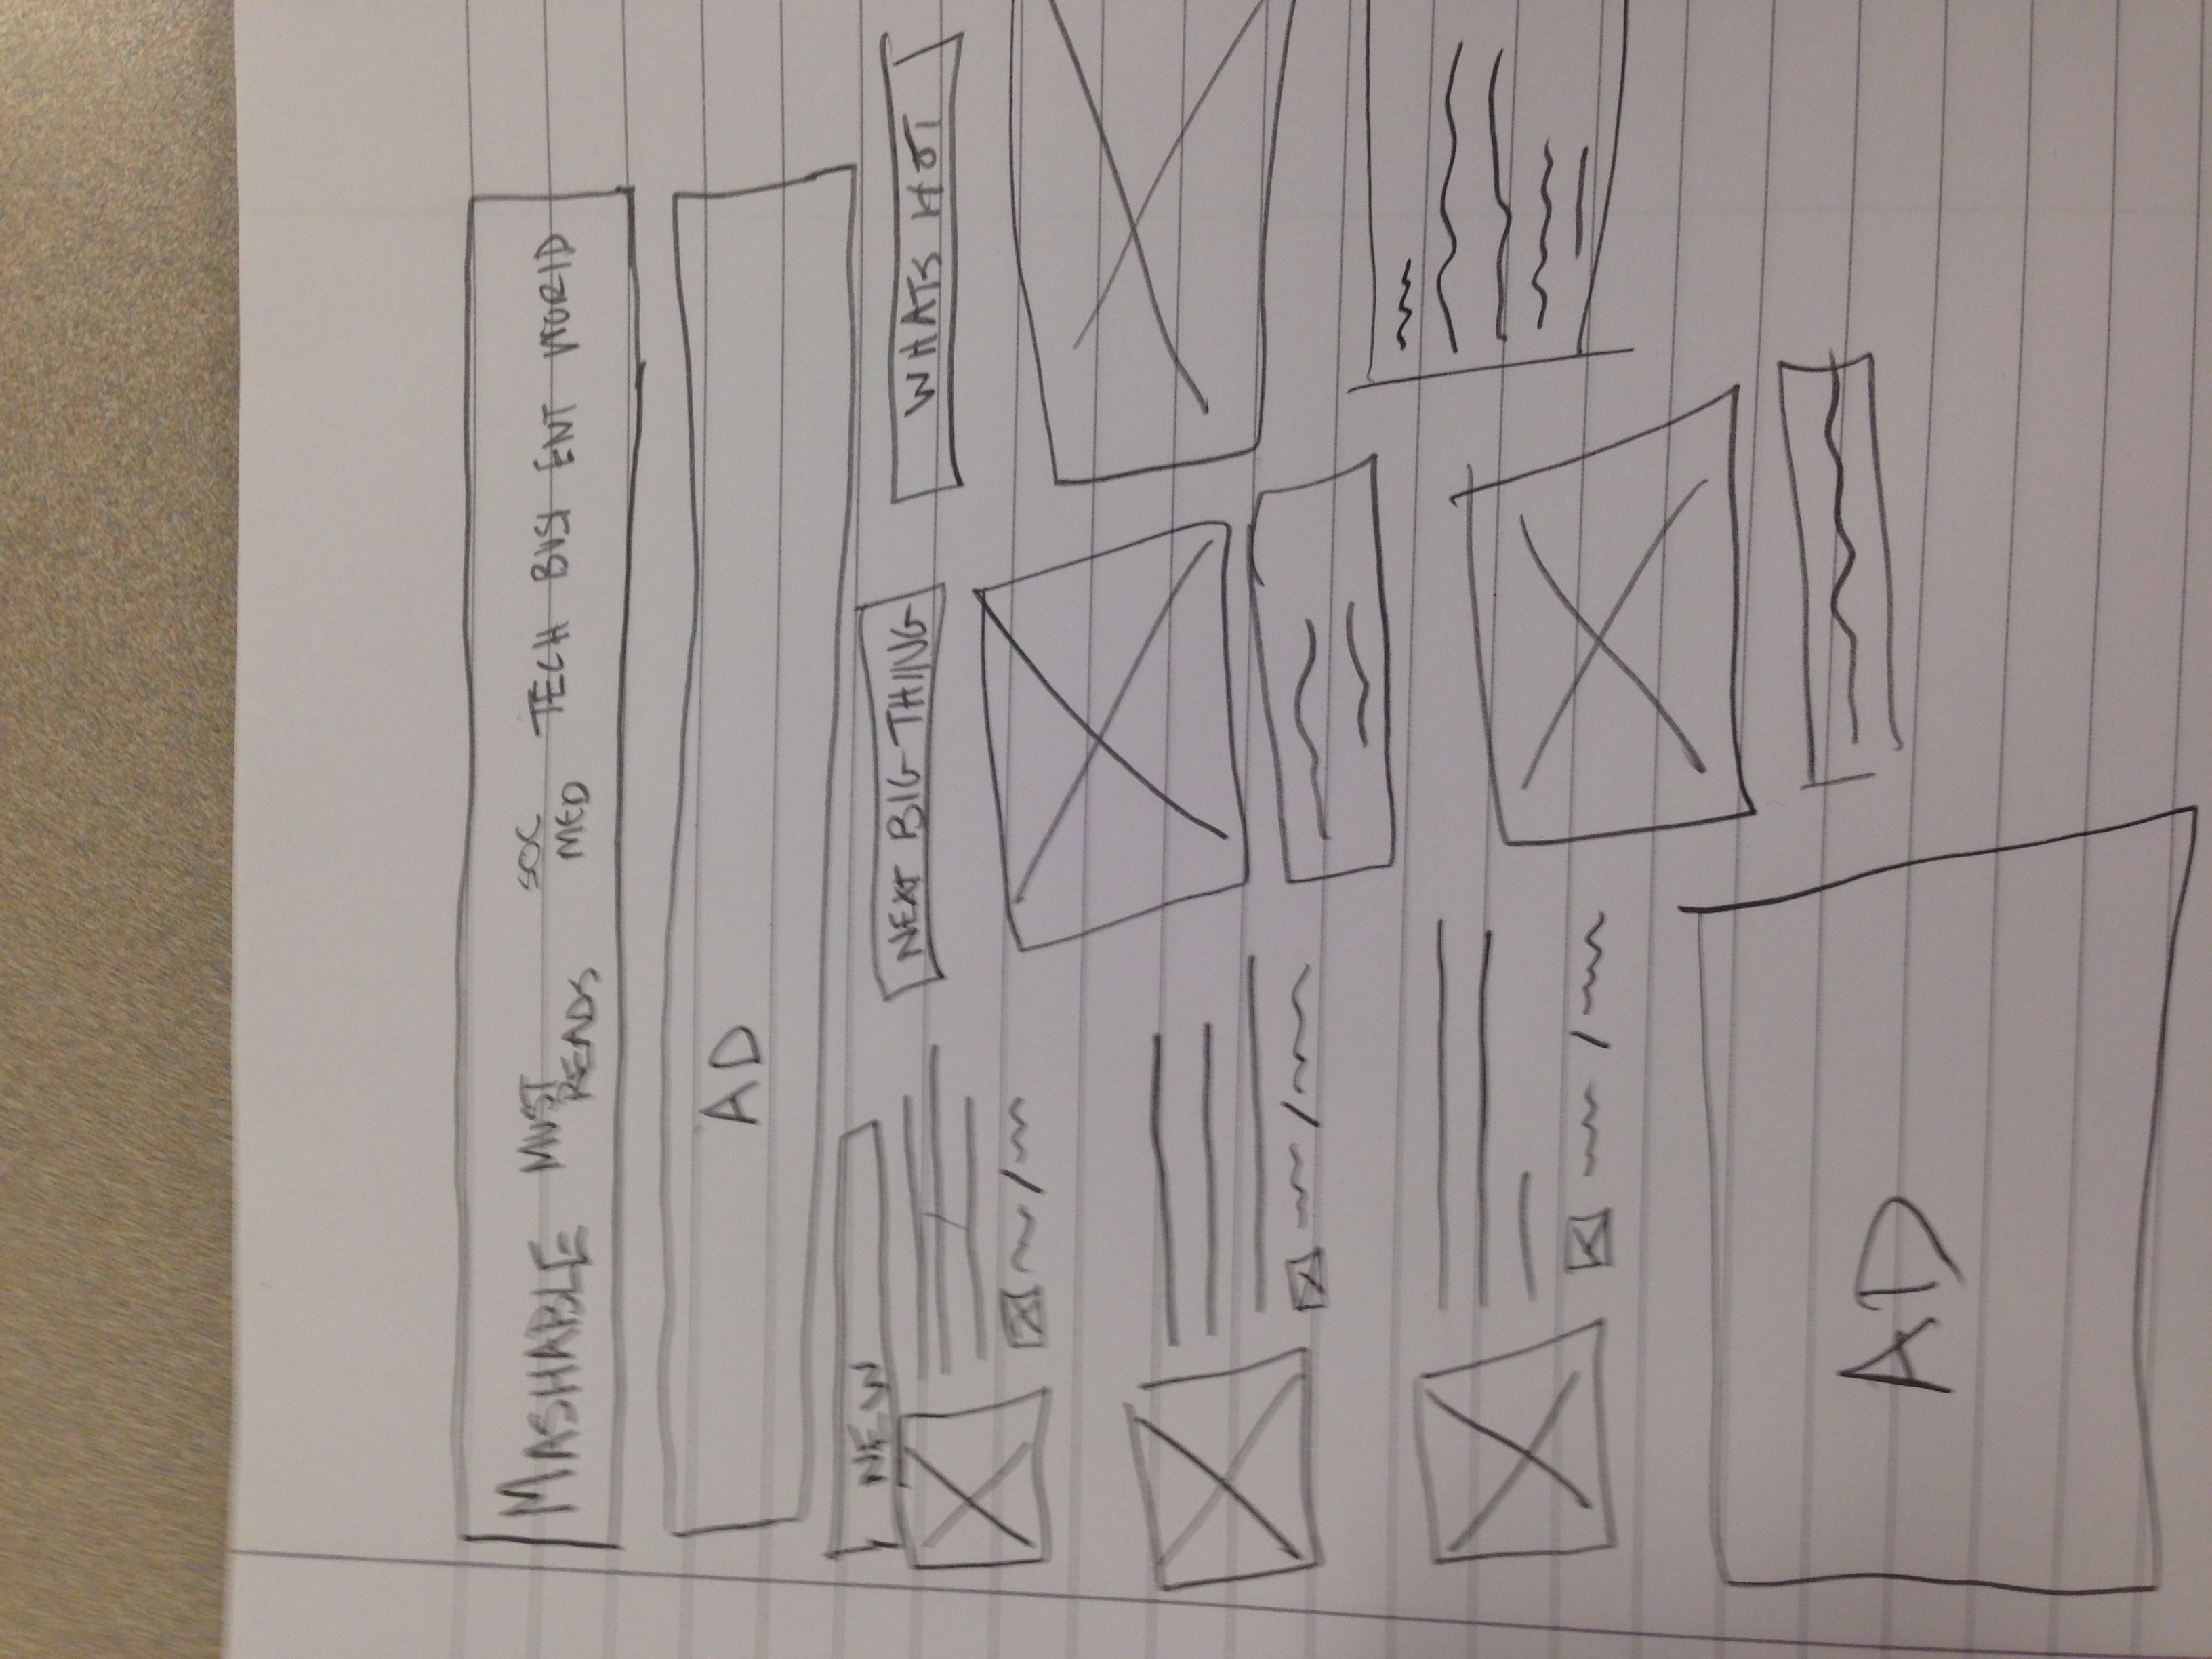 MASHABLE MUST READS SOC MED TECH BUSI ENT WORLD
AD
NEW
NEXT BIG THIING
WHATS HOT
AD